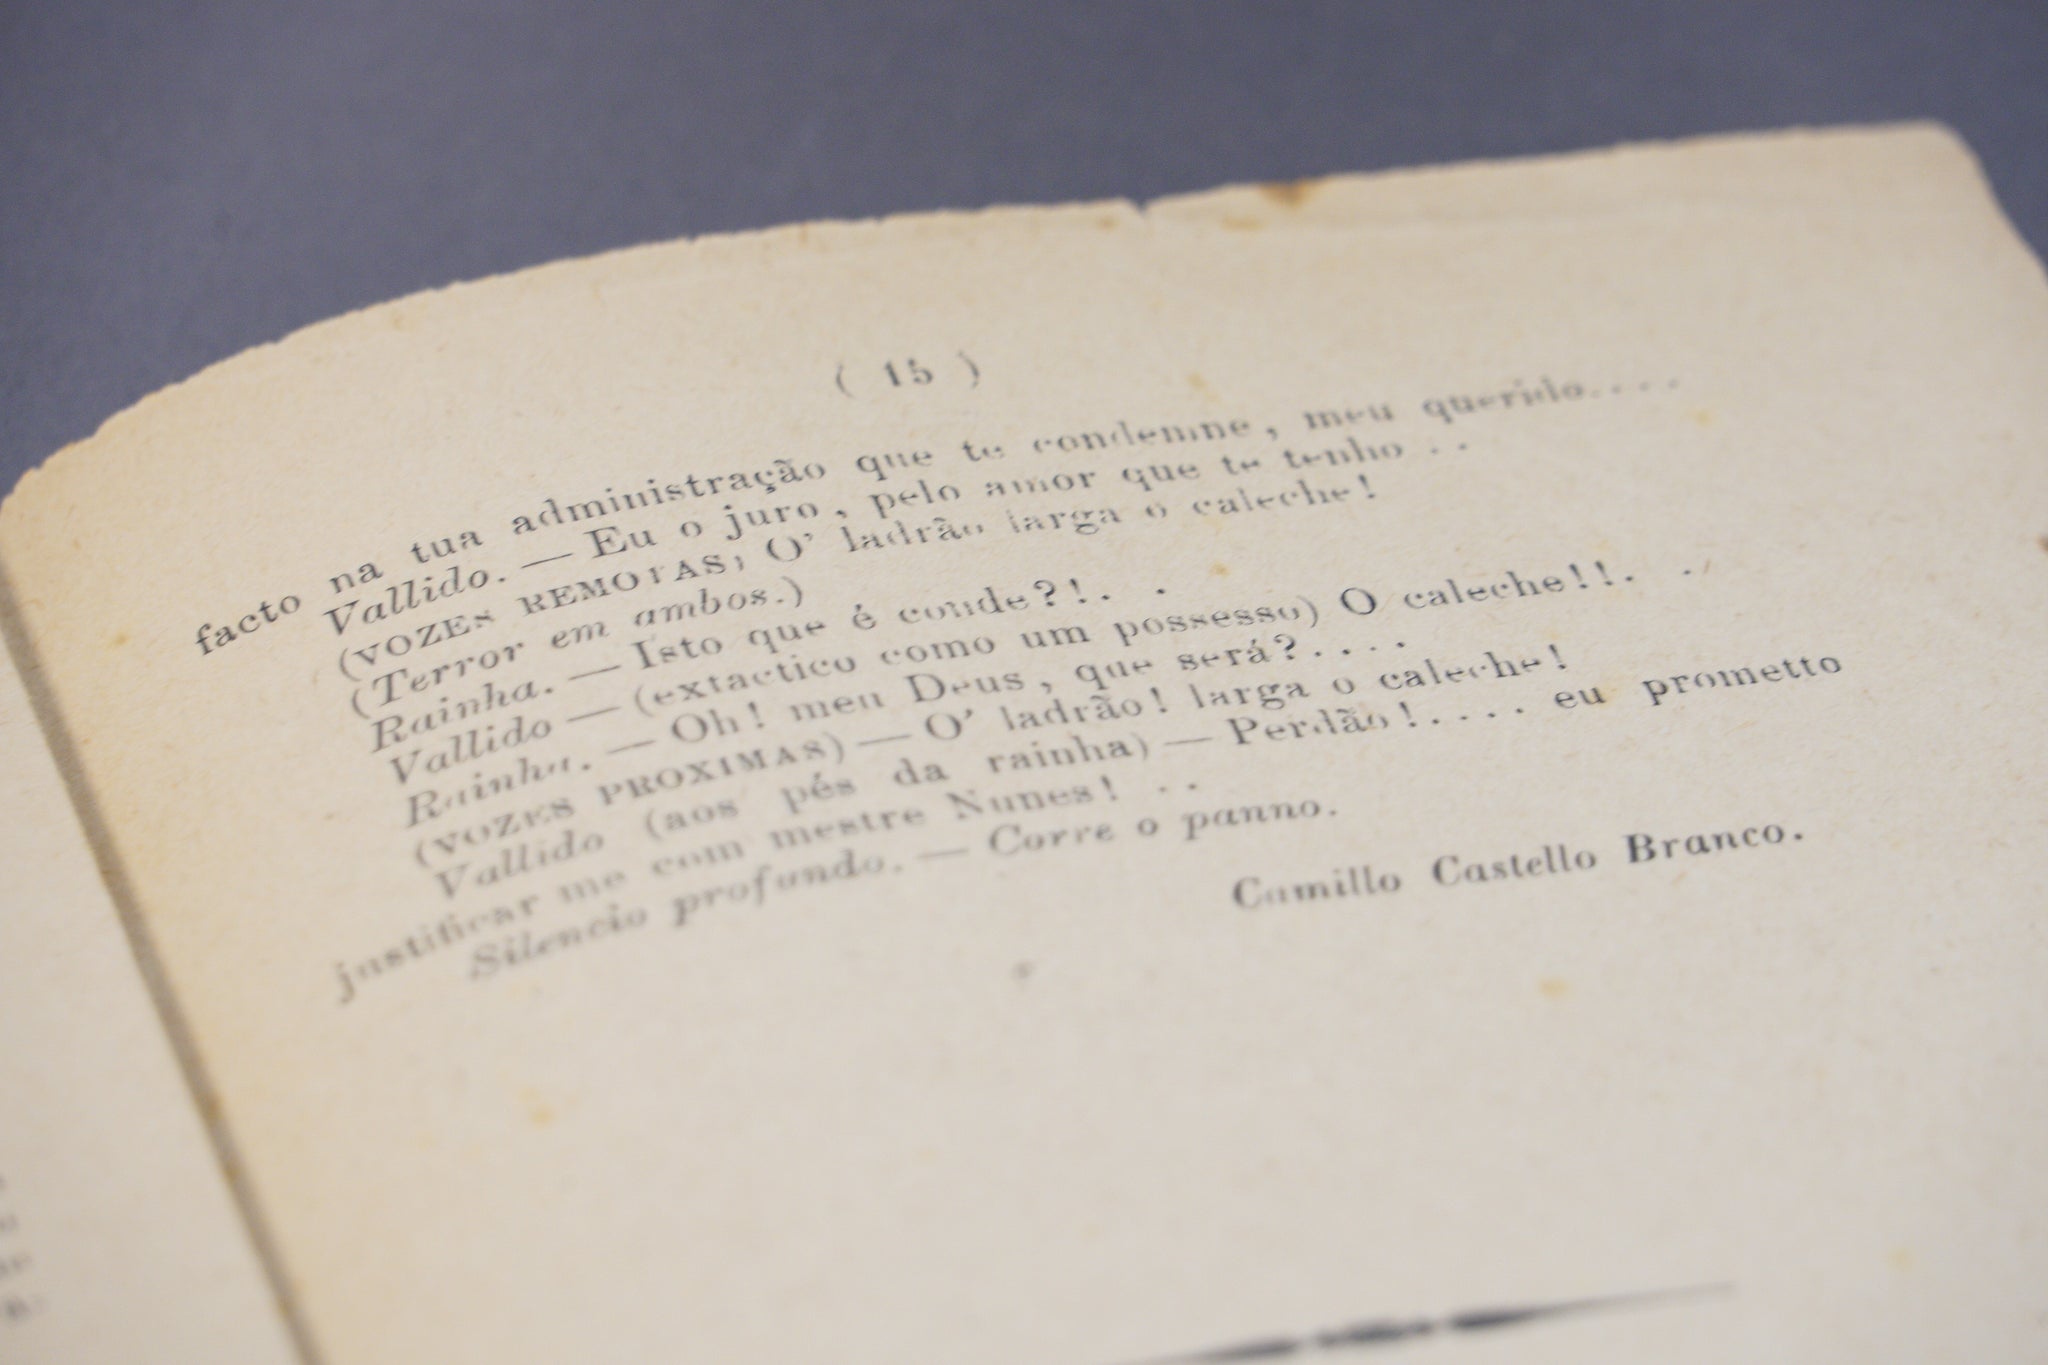 ( 15 )
facto na tua administração que te condemne, meu querido....
Vallido. — Eu o juro, pelo amor que te tenho . .
(VOZES REMOTAS) O' ladrão larga o caleche!
(Terror em ambos.)
Rainha. — Isto que é conde?!. .
Vallido — (extactico como um possesso) O caleche!!. . .
Rainha. — Oh! meu Deus, que será?....
(VOZES PROXIMAS) — O' ladrão! larga o caleche!
Vallido (aos pés da rainha) — Perdão!.... eu prometto
justificar me com mestre Nunes! . .
Silencio profundo. — Corre o panno.
Camillo Castello Branco.